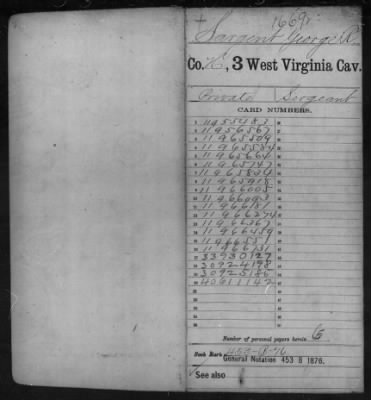 1669
Sargent George R.
Co. K, 3 West Virginia Cav.
Private Sergeant
CARD NUMBERS.
1 11955483
2 11956567
3 11965509
4 11965584
5 11965664
6 11965747
7 11965834
8 11965918
9 11966005
10 11966093
11 11966181
12 11966274
13 11966367
14 11966459
15 11966551
16 11966731
17 33930127
18 30924198
19 30925186
20 40611142
Number of personal papers herein 6
Book Mark: 453-B-76
General Notation 453 B 1876.
See also